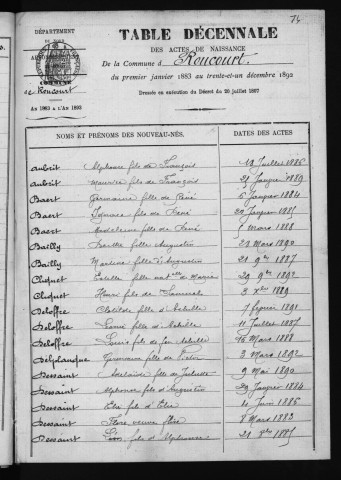 74
DÉPARTEMENT
DU NORD
TABLE DÉCENNALE
DES ACTES DE NAISSANCE
De la Commune d Roucourt.
du premier janvier 1883 au trente-et-un décembre 1892
Dressée en exécution du Décret du 20 juillet 1807
COMMUNE
de Roucourt
AN 1883 A L'AN 1893
NOMS ET PRÉNOMS DES NOUVEAU-NÉS. DATES DES ACTES
Aubrit Alphonse fils de François 19 Juillet 1886
Aubrit Maurice fils de François 1889
Baert Germaine fille de René 5 Janvier 1884
Baert fille de René 20 Janvier 1885
Baert Madeleine fille de René 1 mars 1888
Bailly Berthe fille d'Augustin 21 Mars 1890
Bailly Martine fille d'Augustin 21 9bre 1887
Cliquet Estelle fille natlle de Maria 29 9bre 1892
Cliquet Henri fils de 3 Xbre 1889
Deloffre Clotilde fille d' 7 février 1891
Deloffre fille d' 11 Juillet 1887
Deloffre Louis fils de 16 Mars 1888
Delplanque Germaine fille de Victor 3 Mars 1892
Dessaint Adelaïde fille de 9 Mai 1890
Dessaint Alphonse fils d'Augustin 29 Janvier 1884
Dessaint Elie fils d'Elie 4 Juin 1886
Dessaint Flore 8 Mars 1883
Dessaint Léon fils d'Alphonse 21 8bre 1885